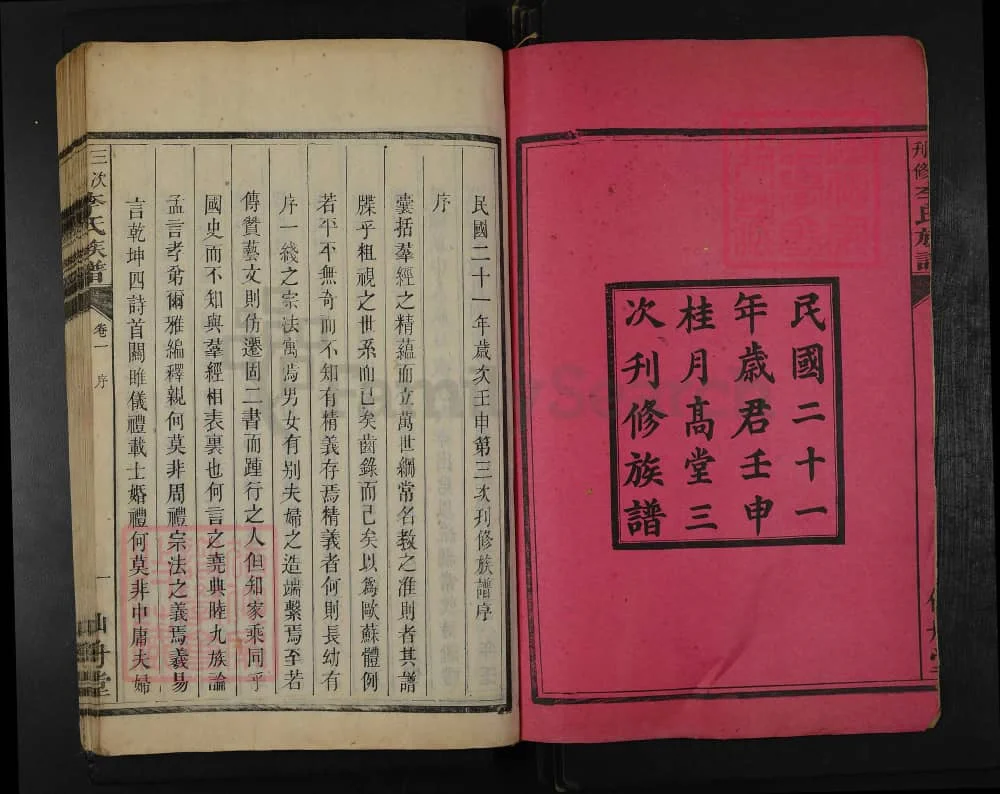 民國二十一
年歲君壬申
桂月高堂三
次刊修族譜
刋修李氏族譜
民國二十一年歲次壬申第三次刋修族譜序
序
囊括羣經之精蘊而立萬世綱常名教之准則者其譜
牒乎粗視之世系而已矣齒錄而已矣以為歐蘇體例
若平平無奇而不知有精義存焉精義者何則長幼有
序一綫之宗法寓焉男女有别夫婦之造端繫焉至若
傳贊藝文則仿遷固二書而踵行之人但知家乘同乎
國史而不知與羣經相表裏也何言之堯典睦九族論
孟言孝弟爾雅編釋親何莫非周禮宗法之義焉羲易
言乾坤四詩首關雎儀禮載士婚禮何莫非中庸夫婦
三次李氏族譜
卷一 序
一